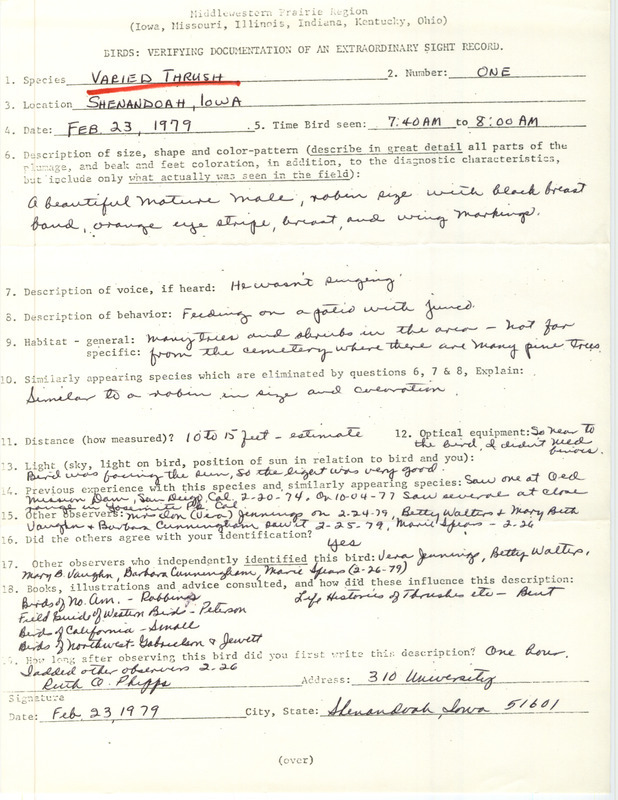 Middlewestern Prairie Region
(Iowa, Missouri, Illinois, Indiana, Kentucky, Ohio)
BIRDS: VERIFYING DOCUMENTATION OF AN EXTRAORDINARY SIGHT RECORD.
1. Species VARIED THRUSH 2. Number: ONE
3. Location SHENANDOAH, IOWA
4. Date: FEB 23, 1979 .5. Time Bird seen: 7:40 AM to 8:00 AM
6. Description of size, shape and color-pattern (describe in great detail all parts of the
plumage, and beak and feet coloration, in addition, to the diagnostic characteristics,
but include only what actually was seen in the field):
A beautiful mature male, robin size with black breast
band, orange eye stripe, breast, and wing markings.
7. Description of voice, if heard: He wasn't singing.
8. Description of behavior: Feeding on a patio with junco.
9. Habitat - general: many trees and shrubs in the area - not far
specific: from the cemetery where there are many pine trees.
10. Similarly appearing species which are eliminated by questions 6, 7 & 8, Explain:
Similar to a robin in size and coloration.
11. Distance (how measured)? 10 to 15 feet - estimate 12. Optical equipment: So near to
the bird, I didn't need
binocs.
13. Light (sky, light on bird, position of sun in relation to bird and you):
Bird was facing the sun, so the light was very good.
14. Previous experience with this species and similarly appearing species: Saw one at Old
Mission Dam, San Diego, Cal. 2-20-74, On 10-04-77 Saw several at close
range in Yosemite Pk. Cal.
15. Other observers: Mrs Don (Vera) Jennings on 2-24-79, Betty Walters & Mary Beth
Vaughn & Barbara Cunningham saw it 2-25-79, Marie Spears - 2-26
16. Did the others agree with your identification? yes
17. Other observers who independently identified this bird: Vera Jennings, Betty Walters,
Mary B. Vaughn, Barbara Cunningham, Marie Spears (2-26-79)
18. Books, illustrations and advice consulted, and how did these influence this description:
Birds of No. Am. - Robbins Life Histories of Thrushes etc - Bent
Field Guide of Western Birds - Peterson
Birds of California - Small
Birds of Northwest - Gabrielson & Jewett
19. How long after observing this bird did you first write this description? One hour.
I added other observers 2-26
Ruth O. Phipps Address: 310 University
Signature
Date: Feb. 23, 1979 City, State: Shenandoah, Iowa 51601
(over)